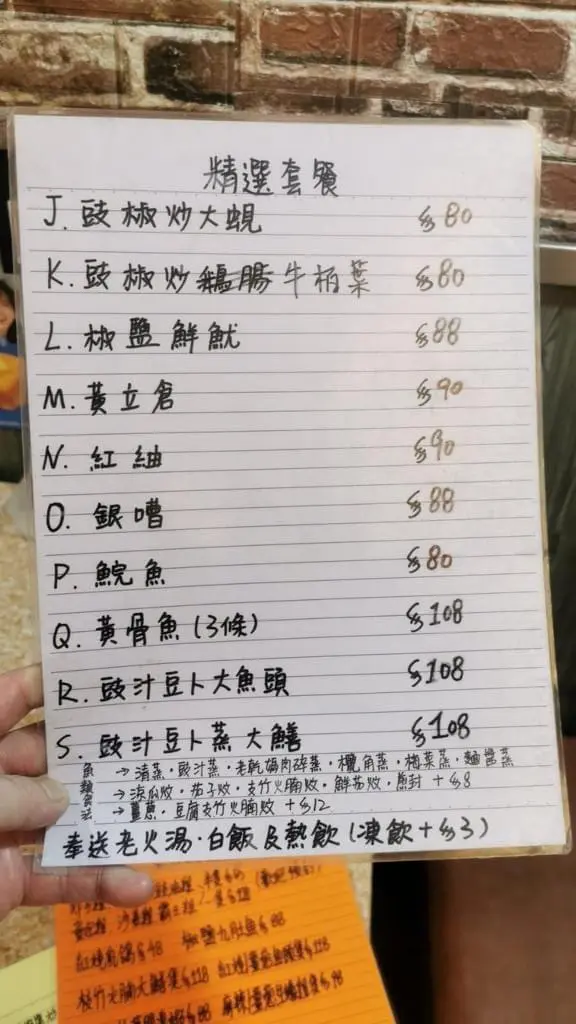 精選套餐
J. 豉椒炒大蜆 $80
K. 豉椒炒鵝腸牛柏葉 $80
L. 椒鹽鮮魷 $88
M. 黃立倉 $90
N. 紅紬 $90
O. 銀嘈 $88
P. 鯇魚 $80
Q. 黃骨魚(3條) $108
R. 豉汁豆卜大魚頭 $108
S. 豉汁豆卜蒸大鱔 $108
魚類食法
→清蒸·豉汁蒸·老乾媽肉碎蒸·欖角蒸·梅菜蒸·麵醬蒸
→涼瓜炆·茄子炆·支竹火腩炆·鮮茄炆·煎封 +$8
→薑蔥·豆腐支竹火腩炆 +$12
奉送老火湯·白飯及熱飲(凍飲+$3)
紅燒乳鴿$48 椒鹽九肚魚$88
枝竹火腩大鱔煲$118